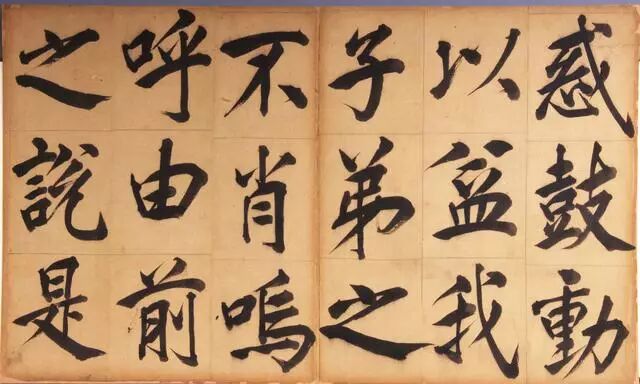 惑鼓動
以益我
子弟之
不肖嗚
呼由前
之說是